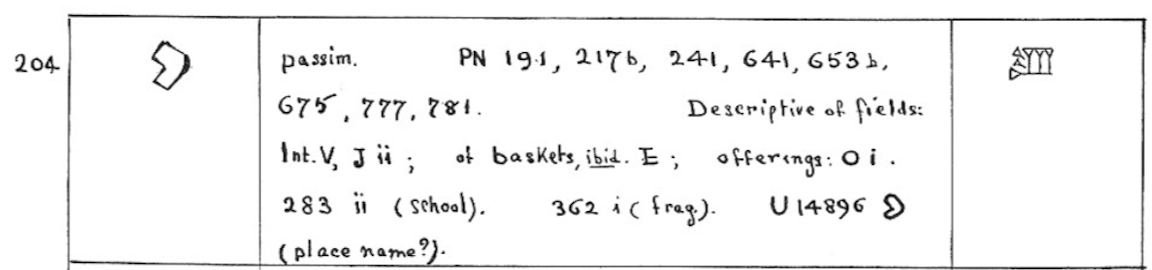 204 passim. PN 191, 217b, 241, 641, 653b,
675, 777, 781. Descriptive of fields:
Int. V, J ii ; of baskets, ibid. E ; offerings: O i .
283 ii (school). 362 i (frag.). U 14896
(place name?).